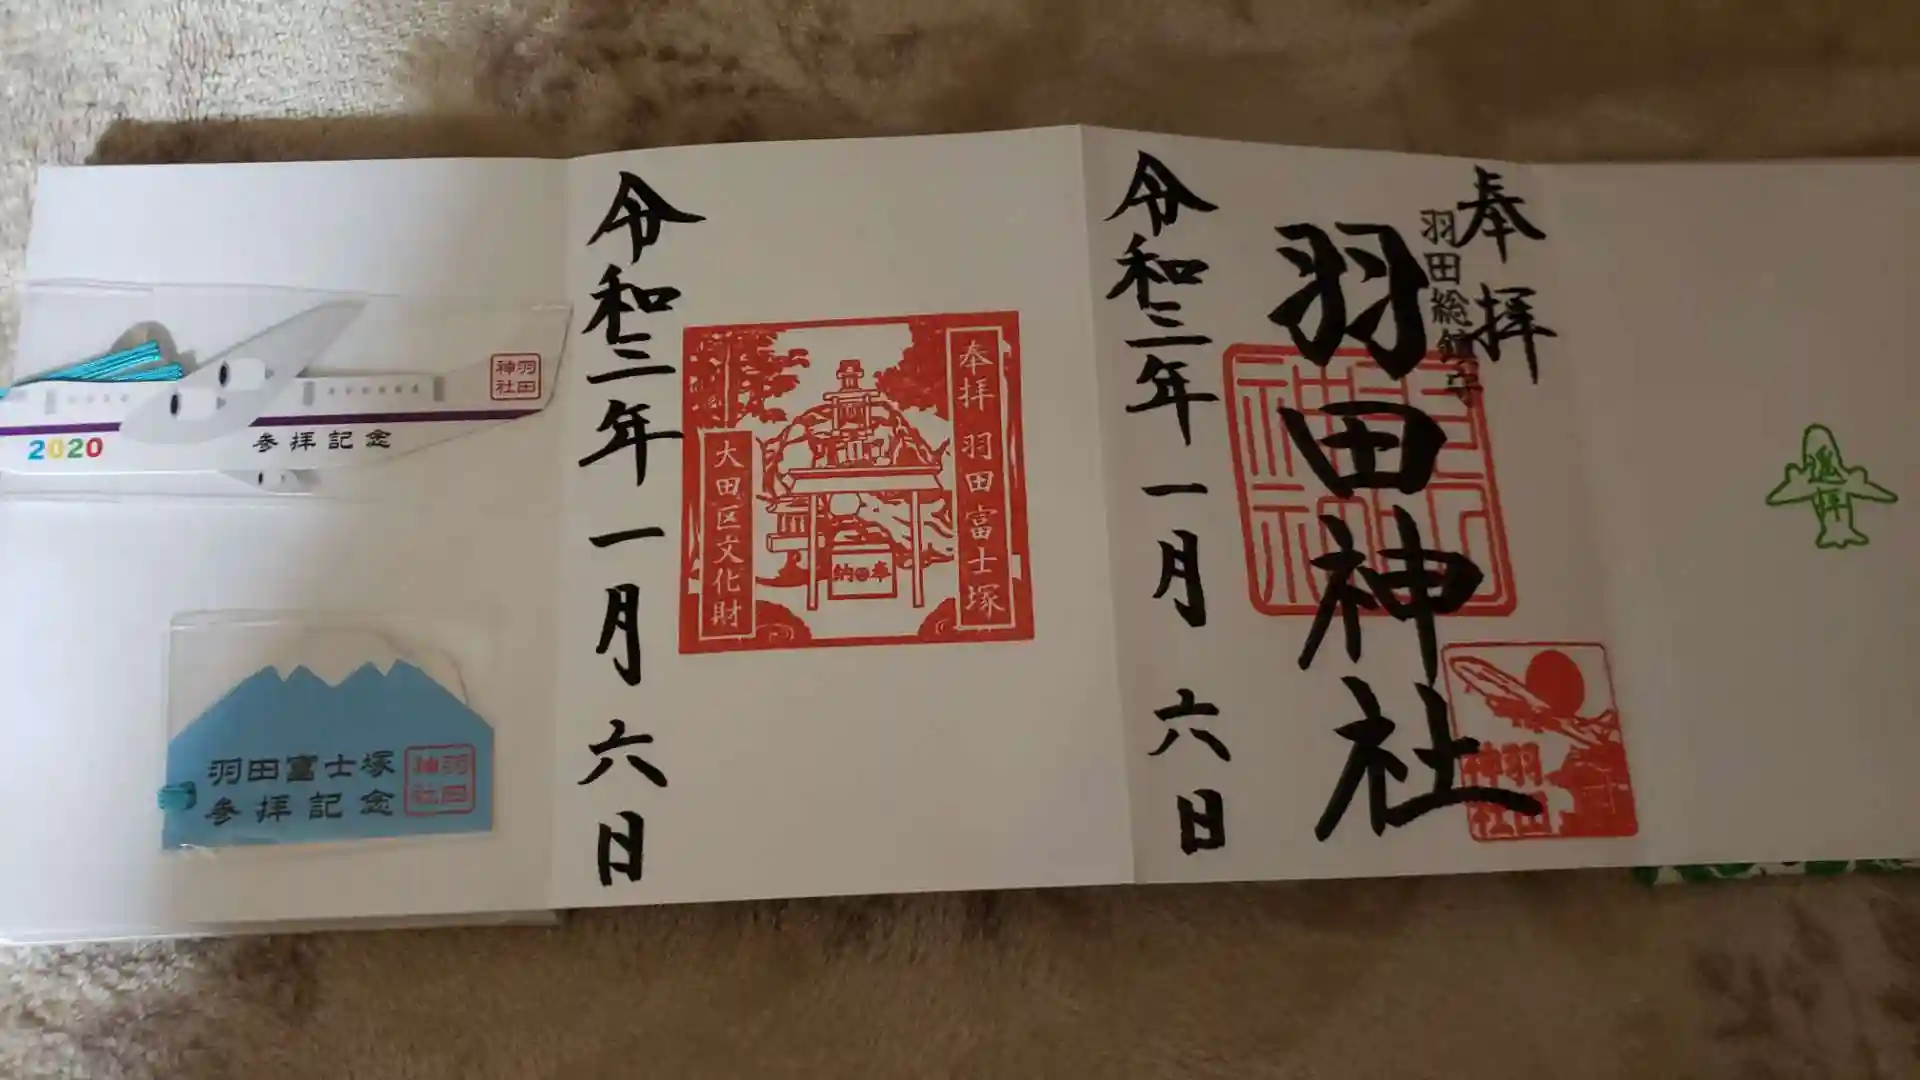 遥拝
奉拝
羽田総鎮守
羽田神社
羽田
神社
令和二年一月六日
奉拝 羽田富士塚
奉納
大田区文化財
令和二年一月六日
羽田
神社
2020 参拝記念
羽田富士塚
参拝記念
羽田
神社